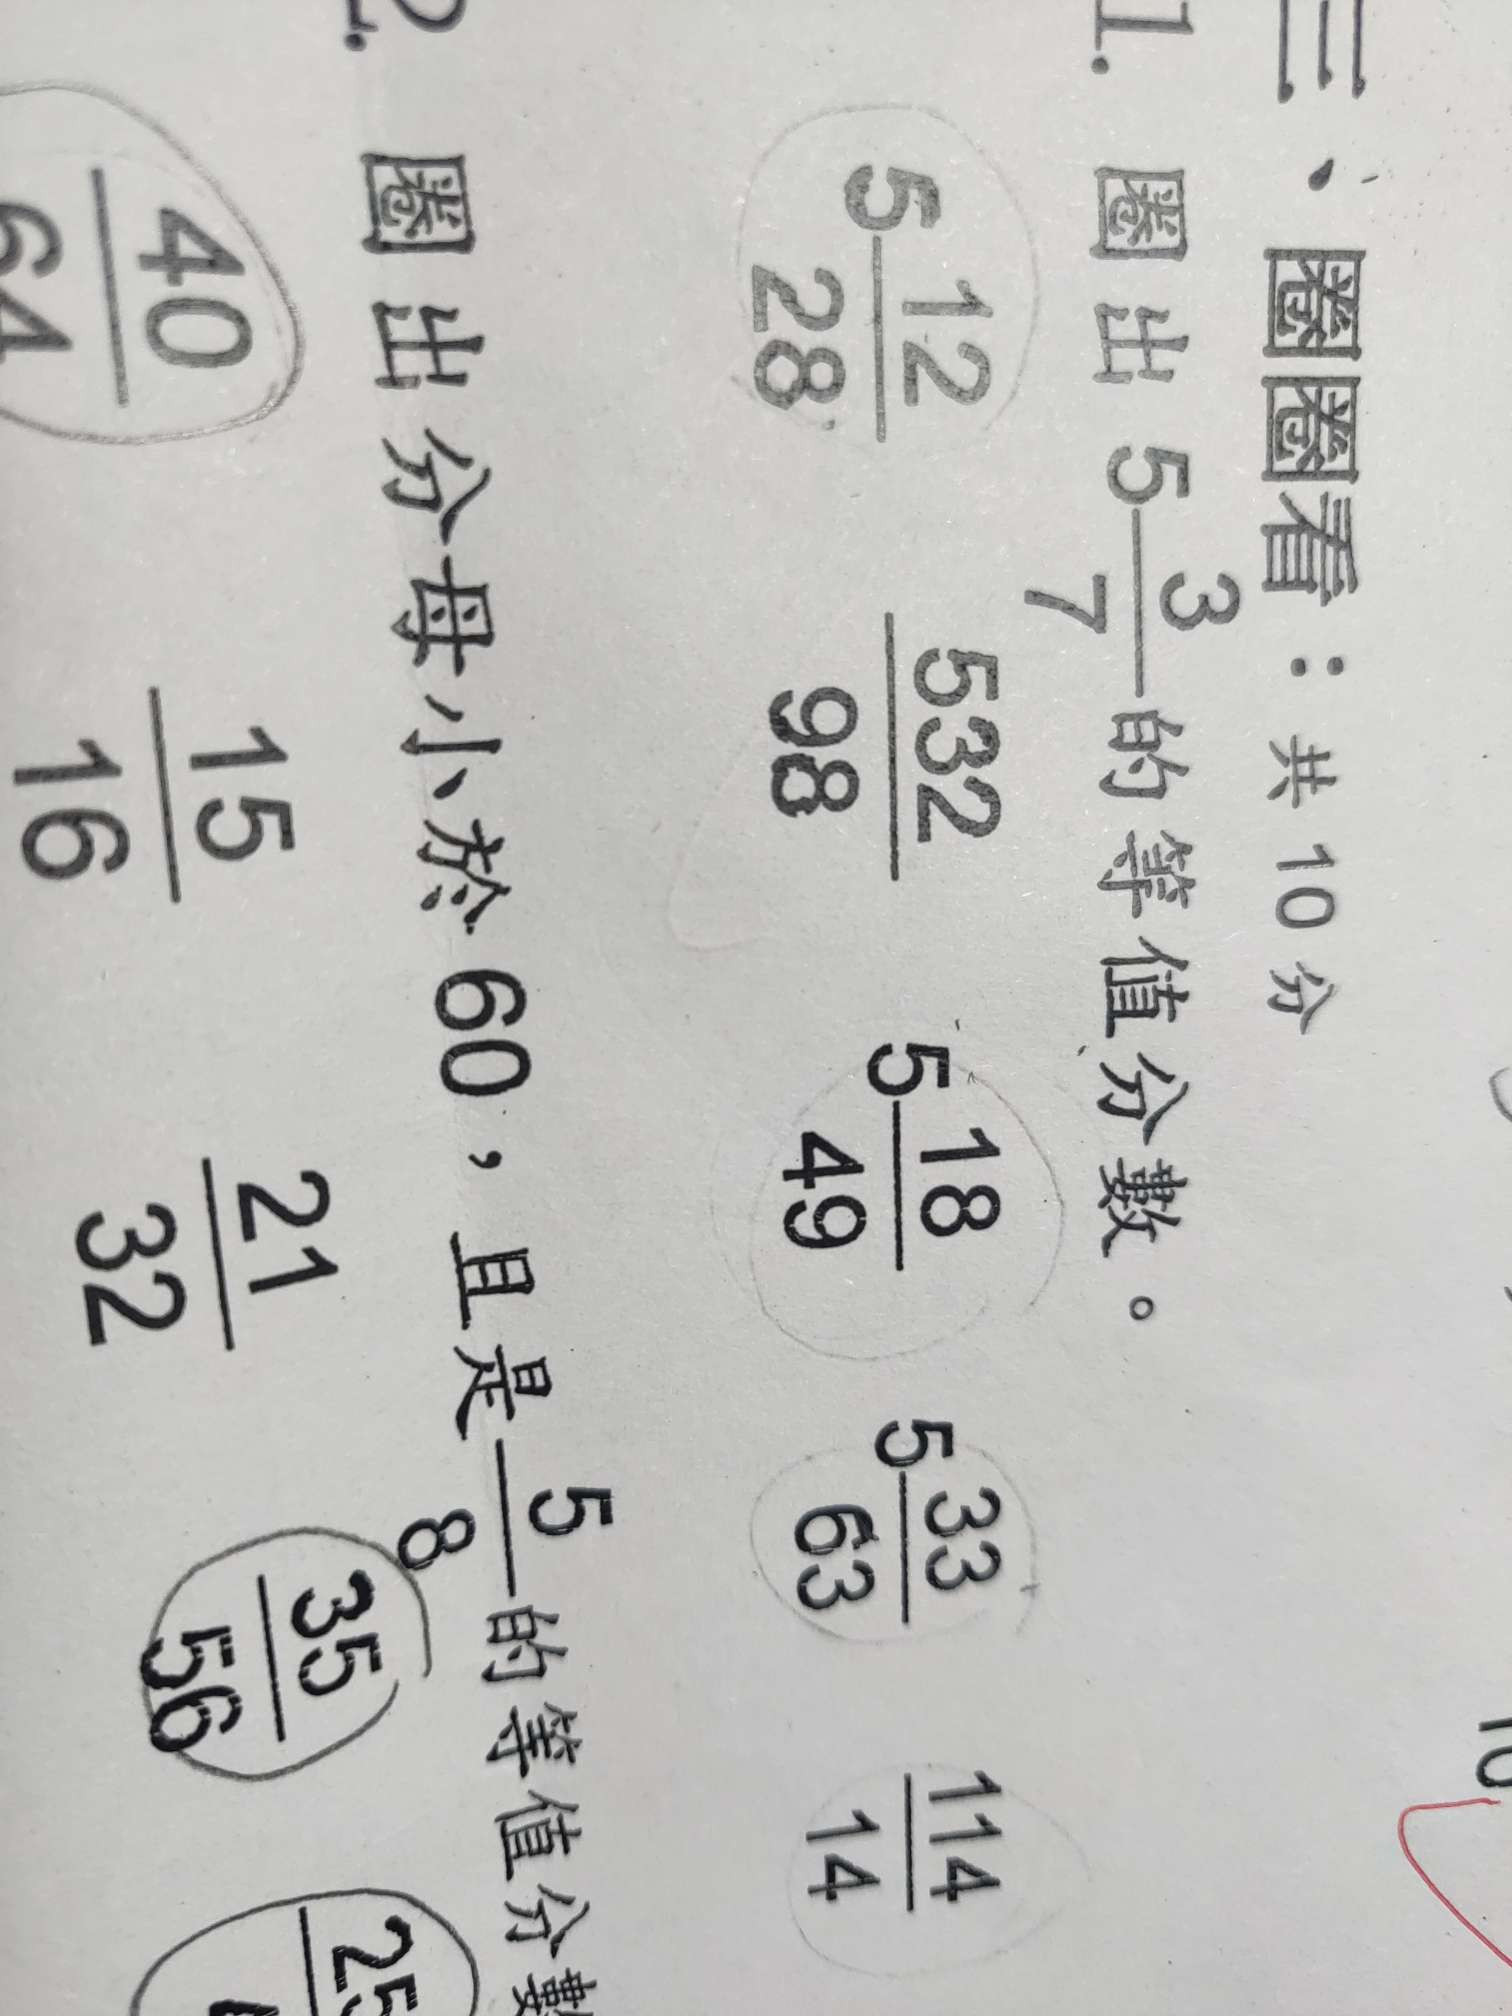 三、圈圈看：共10分
1. 圈出 5 3/7 的等值分數。
5 12/28 532/98 5 18/49 5 33/63 114/14
2. 圈出分母小於60，且是 5/8 的等值分數
40/64 15/16 21/32 35/56 25
10